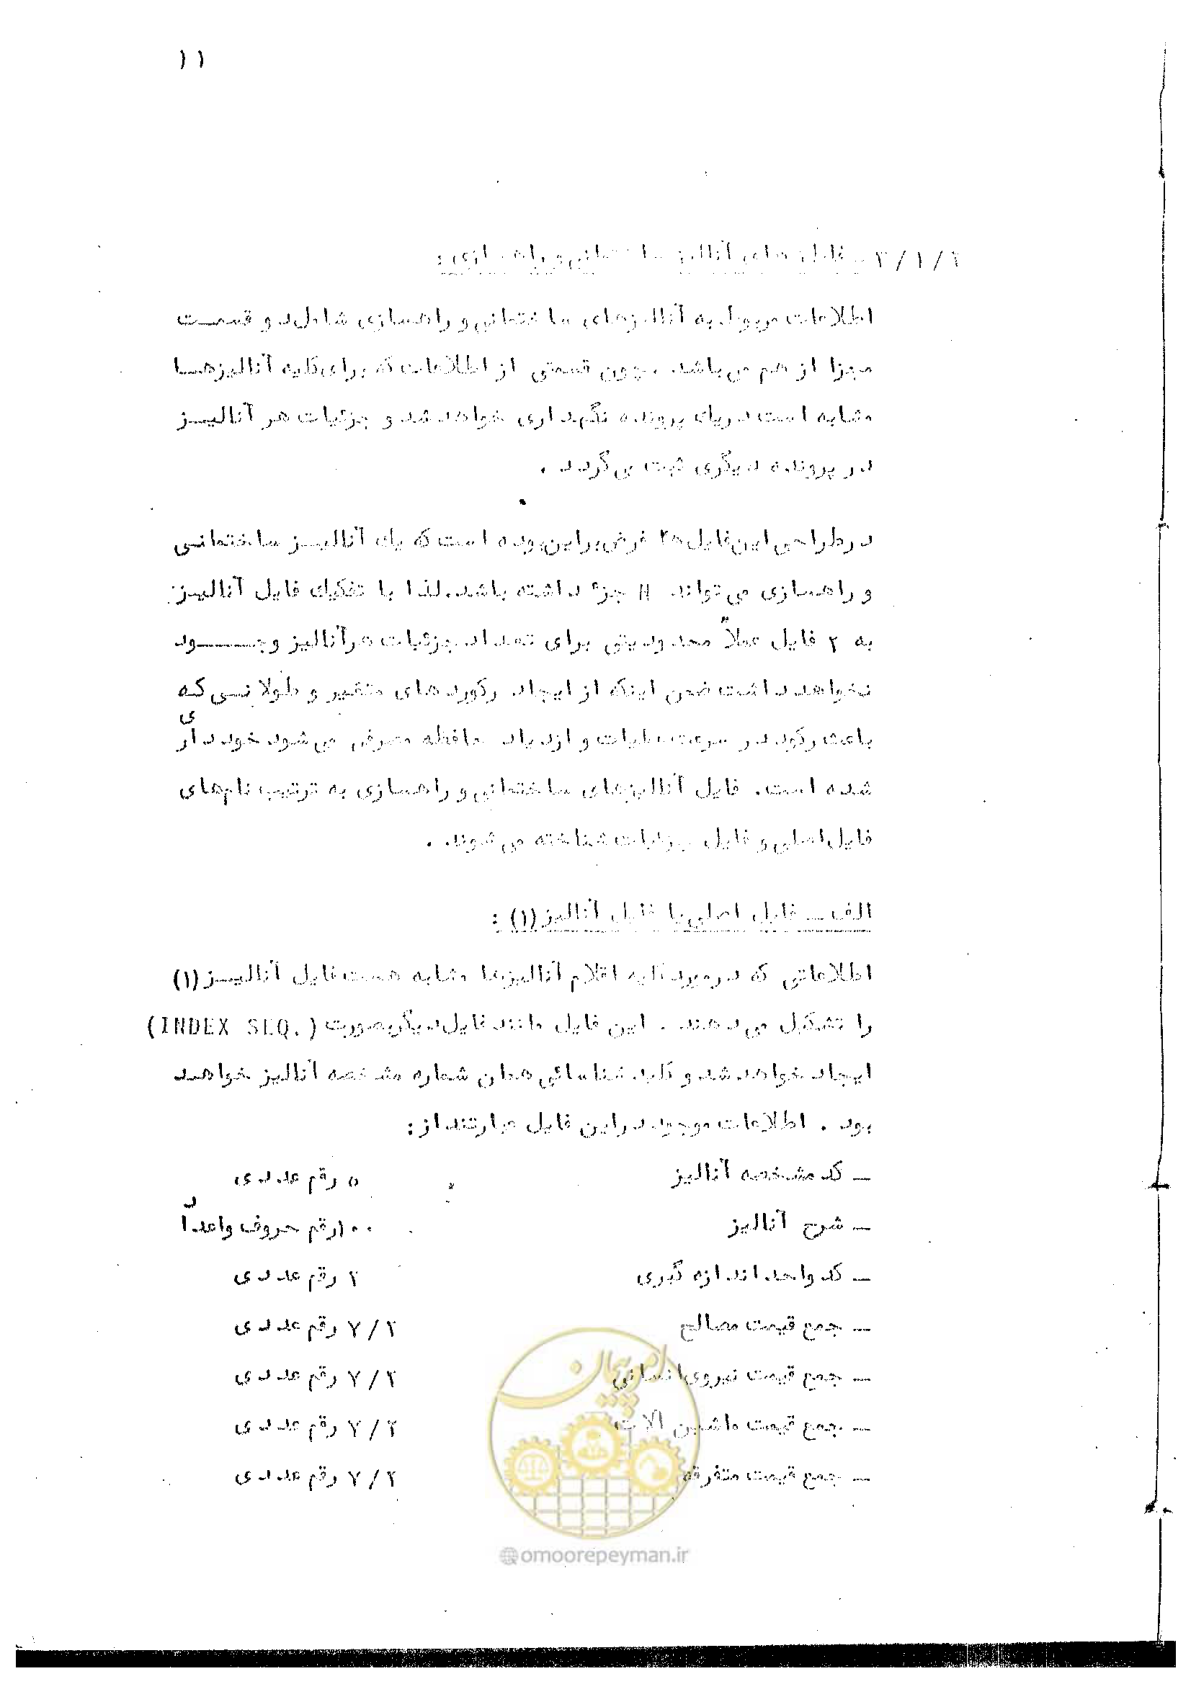 ۱۱
۲/۱/۳ ـ فایل های آنالیز ساختمانی و راهسازی :
اطلاعات مربوط به آنالیزهای ساختمانی و راهسازی شامل دو قسمت
مجزا از هم می‌باشد . چون قسمتی از اطلاعات که برای کلیه آنالیزها
مشابه است در یك پرونده نگهداری خواهد شد و جزئیات هر آنالیز
در پرونده دیگری ثبت می‌گردد .
در طراحی این فایل ها فرض بر این بوده است که یك آنالیز ساختمانی
و راهسازی می‌تواند N جزء داشته باشد . لذا با تفکیك فایل آنالیز
به ۲ فایل عملاً محدودیتی برای تعداد جزئیات هر آنالیز وجود
نخواهد داشت ضمن اینکه از ایجاد رکوردهای متغیر و طولانی که
باعث رکود در سرعت عملیات و ازدیاد حافظه مصرفی می‌شود خودداری
شده است . فایل آنالیزهای ساختمانی و راهسازی به ترتیب نام‌های
فایل اصلی و فایل جزئیات شناخته می‌شوند .
الف ـ فایل اصلی یا فایل آنالیز (۱) :
اطلاعاتی که در مورد کلیه اقلام آنالیزها مشابه هست فایل آنالیز (۱)
را تشکیل می‌دهند . این فایل مانند فایل دیگر بصورت (INDEX SEQ.)
ایجاد خواهد شد و کلید شناسائی همان شماره مشخصه آنالیز خواهد
بود . اطلاعات موجود در این فایل عبارتند از :
ـ کد مشخصه آنالیز ۵ رقم عددی
ـ شرح آنالیز ۱۰۰ رقم حروف واعداد
ـ کد واحد اندازه گیری ۲ رقم عددی
ـ جمع قیمت مصالح ۷/۲ رقم عددی
ـ جمع قیمت نیروی انسانی ۷/۲ رقم عددی
ـ جمع قیمت ماشین آلات ۷/۲ رقم عددی
ـ جمع قیمت متفرقه ۷/۲ رقم عددی
امور پیمان
@omoorepeyman.ir